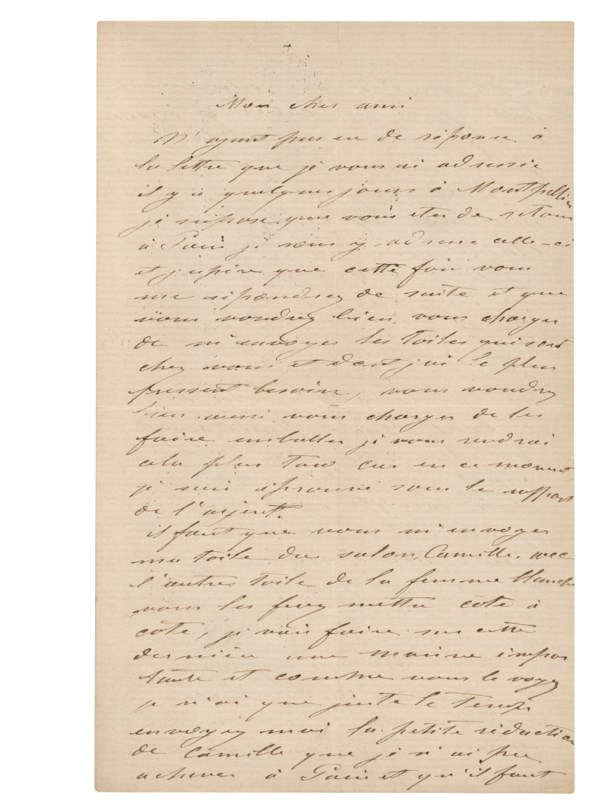 Mon cher ami
N'ayant pas eu de réponse à
la lettre que je vous ai adressée
il y a quelques jours à Montpellier
je suppose que vous etes de retour
à Paris je vous y adresse celle-ci
et j'espère que cette fois vous
me répondrez de suite et que
vous voudrez bien vous charger
de m'envoyer les toiles qui sont
chez vous et dont j'ai le plus
pressant besoin, vous voudrez
bien aussi vous charger de les
faire emballer je vous rendrai
cela plus tard car en ce moment
je suis éprouvé sous le rapport
de l'argent.
il faut que vous m'envoyez
ma toile du salon, Camille, avec
l'autre toile de la femme blanche
vous les ferez mettre cote à
cote, je vais faire sur cette
dernière une marine impor
tante et comme vous le voyez
je n'ai que juste le temps
envoyez moi la petite réduction
de Camille que je n'ai pu
achever à Paris et qu'il faut